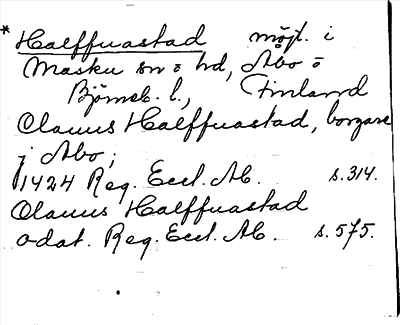 * Halffuastad möjl. i
Masku sn o hd, Åbo o
Björneb. l., Finland
Olauus Halffuastad, borgare
i Åbo,
1424 Reg. Eccl. Ab. s. 314.
Olauus Halffuastad
odat. Reg. Eccl. Ab. s. 575.